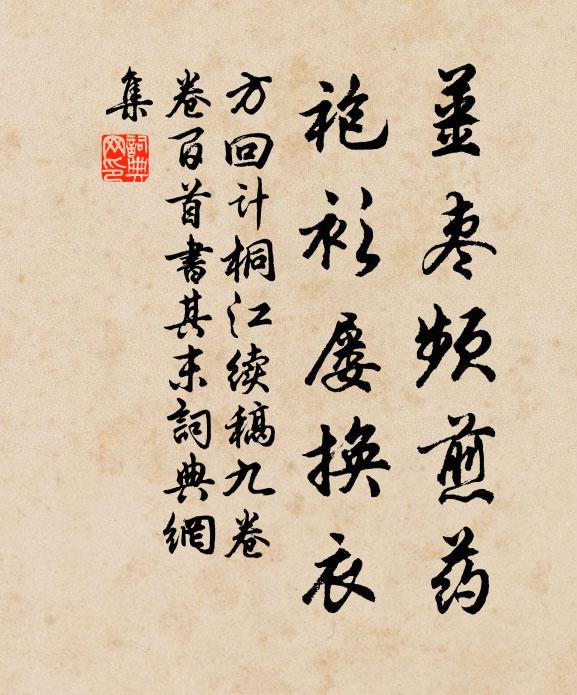 姜枣频煎药
袍衫屡换衣
方回计桐江续稿九卷
卷百首書其末詞典網
集
詞典網印